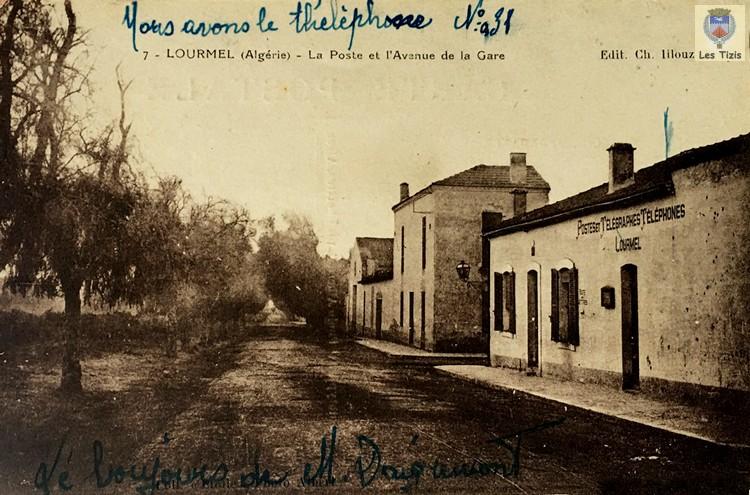 Nous avons le théléphone N° 931
7 - LOURMEL (Algérie) - La Poste et l'Avenue de la Gare
Edit. Ch. Illouz
Les Tizis
POSTES ET TÉLÉGRAPHES TÉLÉPHONES
LOURMEL
toujours de M.